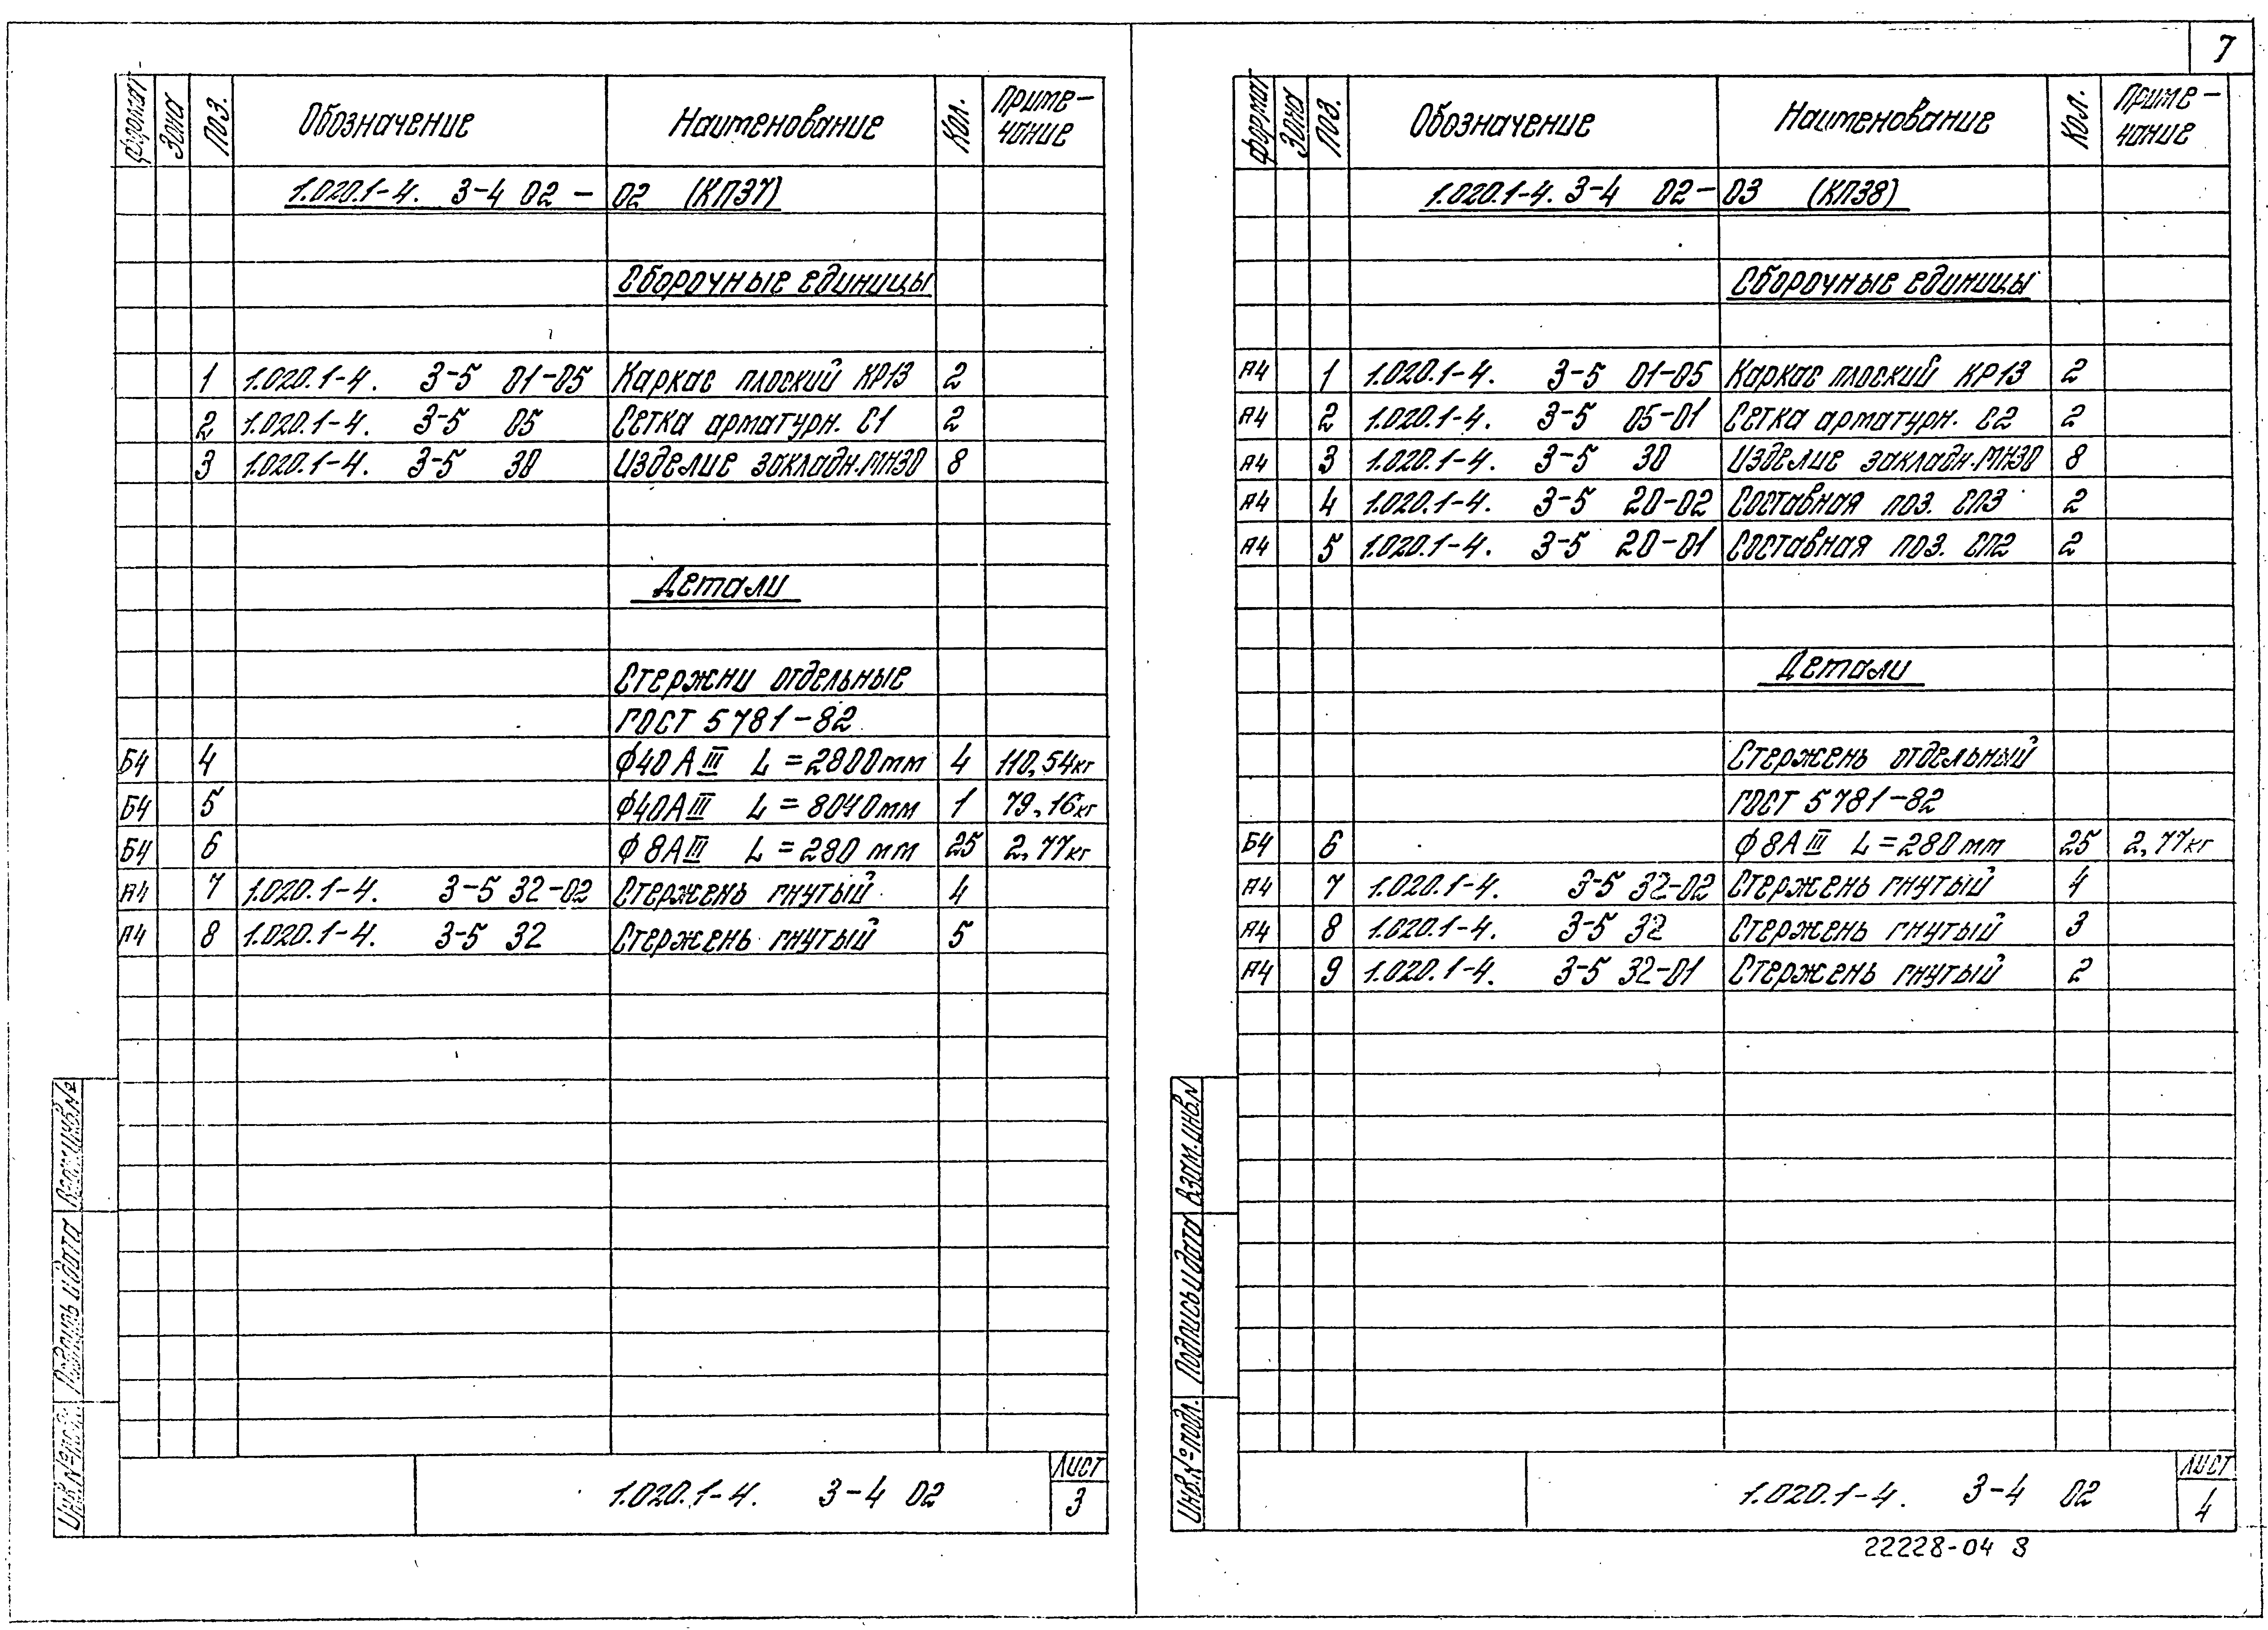 7
Формат Зона Поз. Обозначение Наименование Кол. Приме-
чание
1.020.1-4. 3-4 02 - 02 (КП37)
Сборочные единицы
1 1.020.1-4. 3-5 01-05 Каркас плоский КР13 2
2 1.020.1-4. 3-5 05 Сетка арматурн. С1 2
3 1.020.1-4. 3-5 30 Изделие закладн. МН30 8
Детали
Стержни отдельные
ГОСТ 5781-82
Б4 4 ϕ40АIII L=2800мм 4 110,54кг
Б4 5 ϕ40АIII L=8040мм 1 79,16кг
Б4 6 ϕ8АIII L=280 мм 25 2,77кг
А4 7 1.020.1-4. 3-5 32-02 Стержень гнутый 4
А4 8 1.020.1-4. 3-5 32 Стержень гнутый 5
Инв.№ подл. Подпись и дата Взам.инв.№
1.020.1-4. 3-4 02
Лист
3
Формат Зона Поз. Обозначение Наименование Кол. Приме-
чание
1.020.1-4. 3-4 02-03 (КП38)
Сборочные единицы
А4 1 1.020.1-4. 3-5 01-05 Каркас плоский КР13 2
А4 2 1.020.1-4. 3-5 05-01 Сетка арматурн. С2 2
А4 3 1.020.1-4. 3-5 30 Изделие закладн. МН30 8
А4 4 1.020.1-4. 3-5 20-02 Составная поз. СП3 2
А4 5 1.020.1-4. 3-5 20-01 Составная поз. СП2 2
Детали
Стержень отдельный
ГОСТ 5781-82
Б4 6 ϕ8АIII L=280мм 25 2,77кг
А4 7 1.020.1-4. 3-5 32-02 Стержень гнутый 4
А4 8 1.020.1-4. 3-5 32 Стержень гнутый 3
А4 9 1.020.1-4. 3-5 32-01 Стержень гнутый 2
Инв.№ подл. Подпись и дата Взам.инв.№
1.020.1-4. 3-4 02
Лист
4
22228-04 8